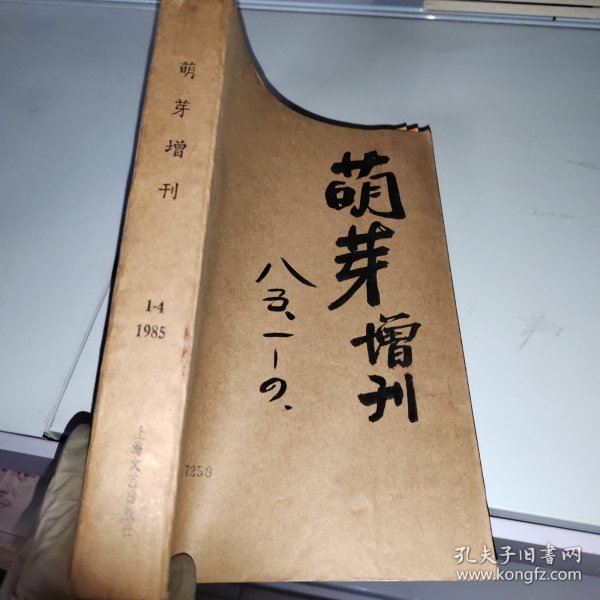 萌芽增刊
1-4
1985
上海文艺出版社
萌芽
增刊
八五、一—四、
7259
孔夫子旧书网
www.kongfz.com